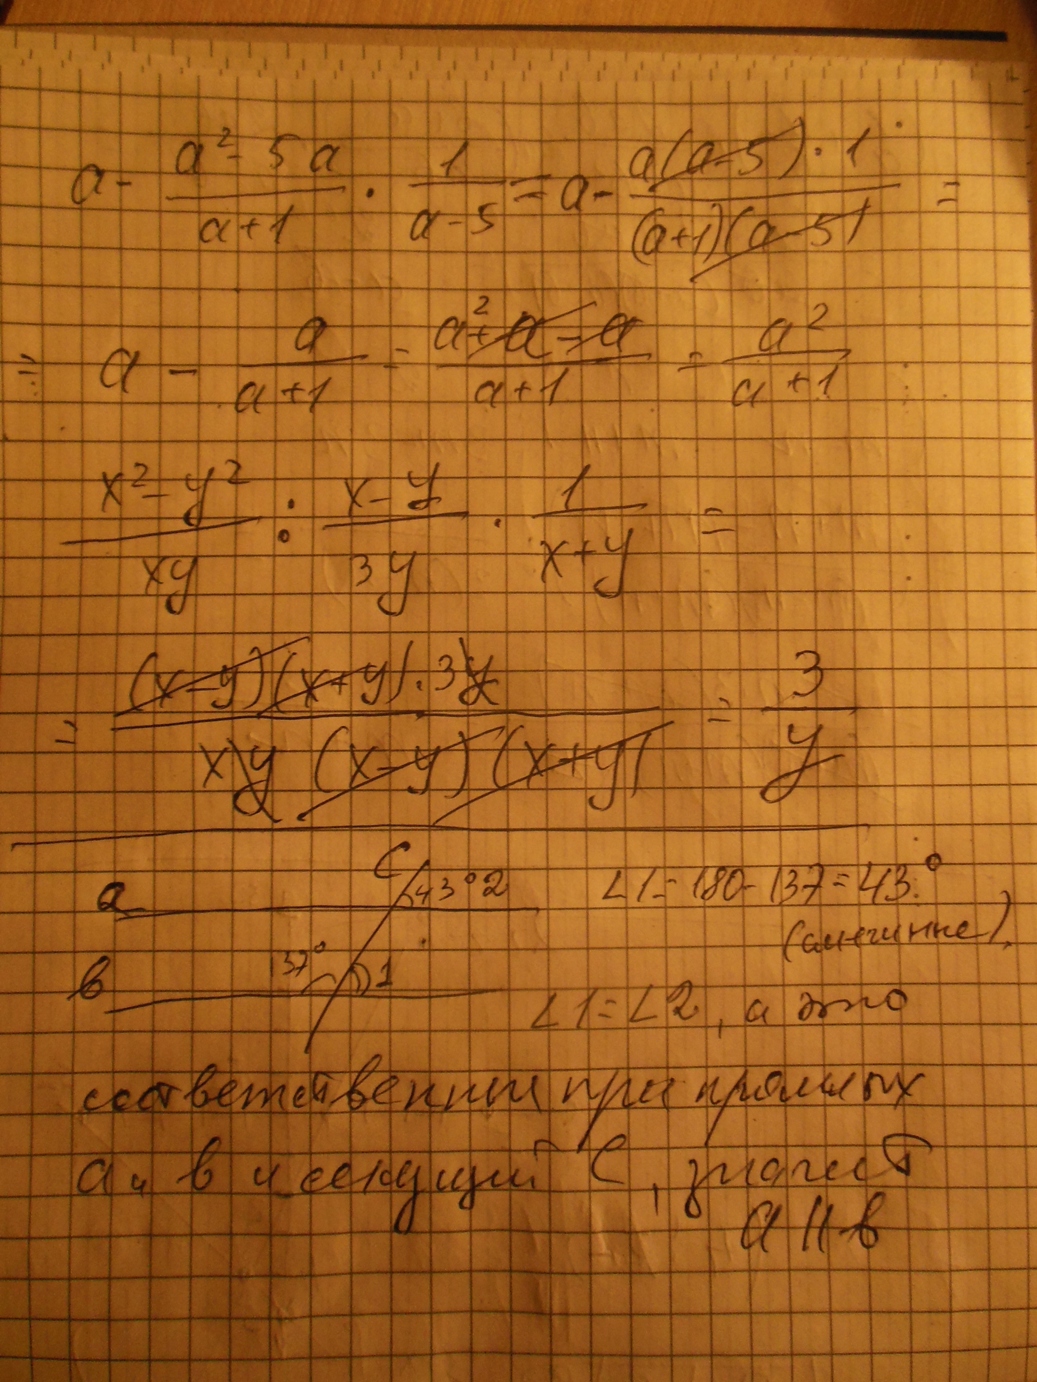 a - (a² - 5a)/(a+1) · 1/(a-5) = a - (a(a-5)·1)/((a+1)(a-5)) =
= a - a/(a+1) = (a²+a-a)/(a+1) = a²/(a+1)
(x²-y²)/(xy) : (x-y)/(3y) · 1/(x+y) =
= ((x-y)(x+y)·3y)/(xy(x-y)(x+y)) = 3/y
c
a 43° 2 ∠1=180-137=43°
(смежные).
в 137° 1
∠1=∠2, а это
соответственный при прямых
а и в и секущий С, значит
a || в